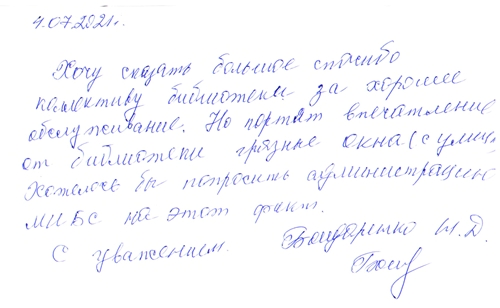 4.07.2021г.
Хочу сказать большое спасибо
коллективу библиотеки за хорошее
обслуживание. Но портят впечатление
от библиотеки грязные окна (с улицы
Хотелось бы попросить администрацию
МИБС на этот факт.
С уважением. Бондаренко Т.Д.